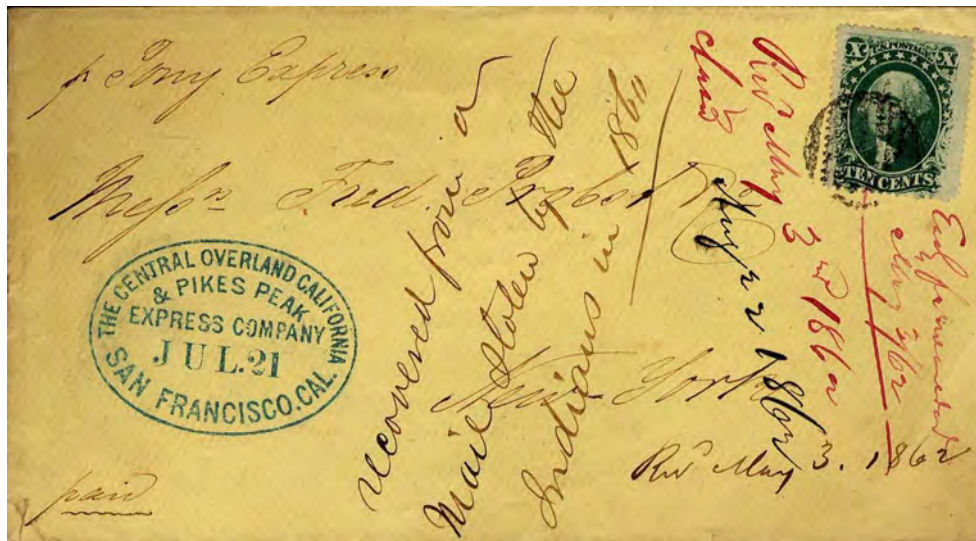 p Pony Express
Messrs Fred. Probst
New York
paid
THE CENTRAL OVERLAND CALIFORNIA
& PIKES PEAK
EXPRESS COMPANY
JUL. 21
SAN FRANCISCO. CAL.
recovered from a
Mail stolen by the
Indians in 1860
Recd May 3rd 1862
May 2 1862
Recd May 3. 1862
X U.S. POSTAGE X
TEN CENTS.